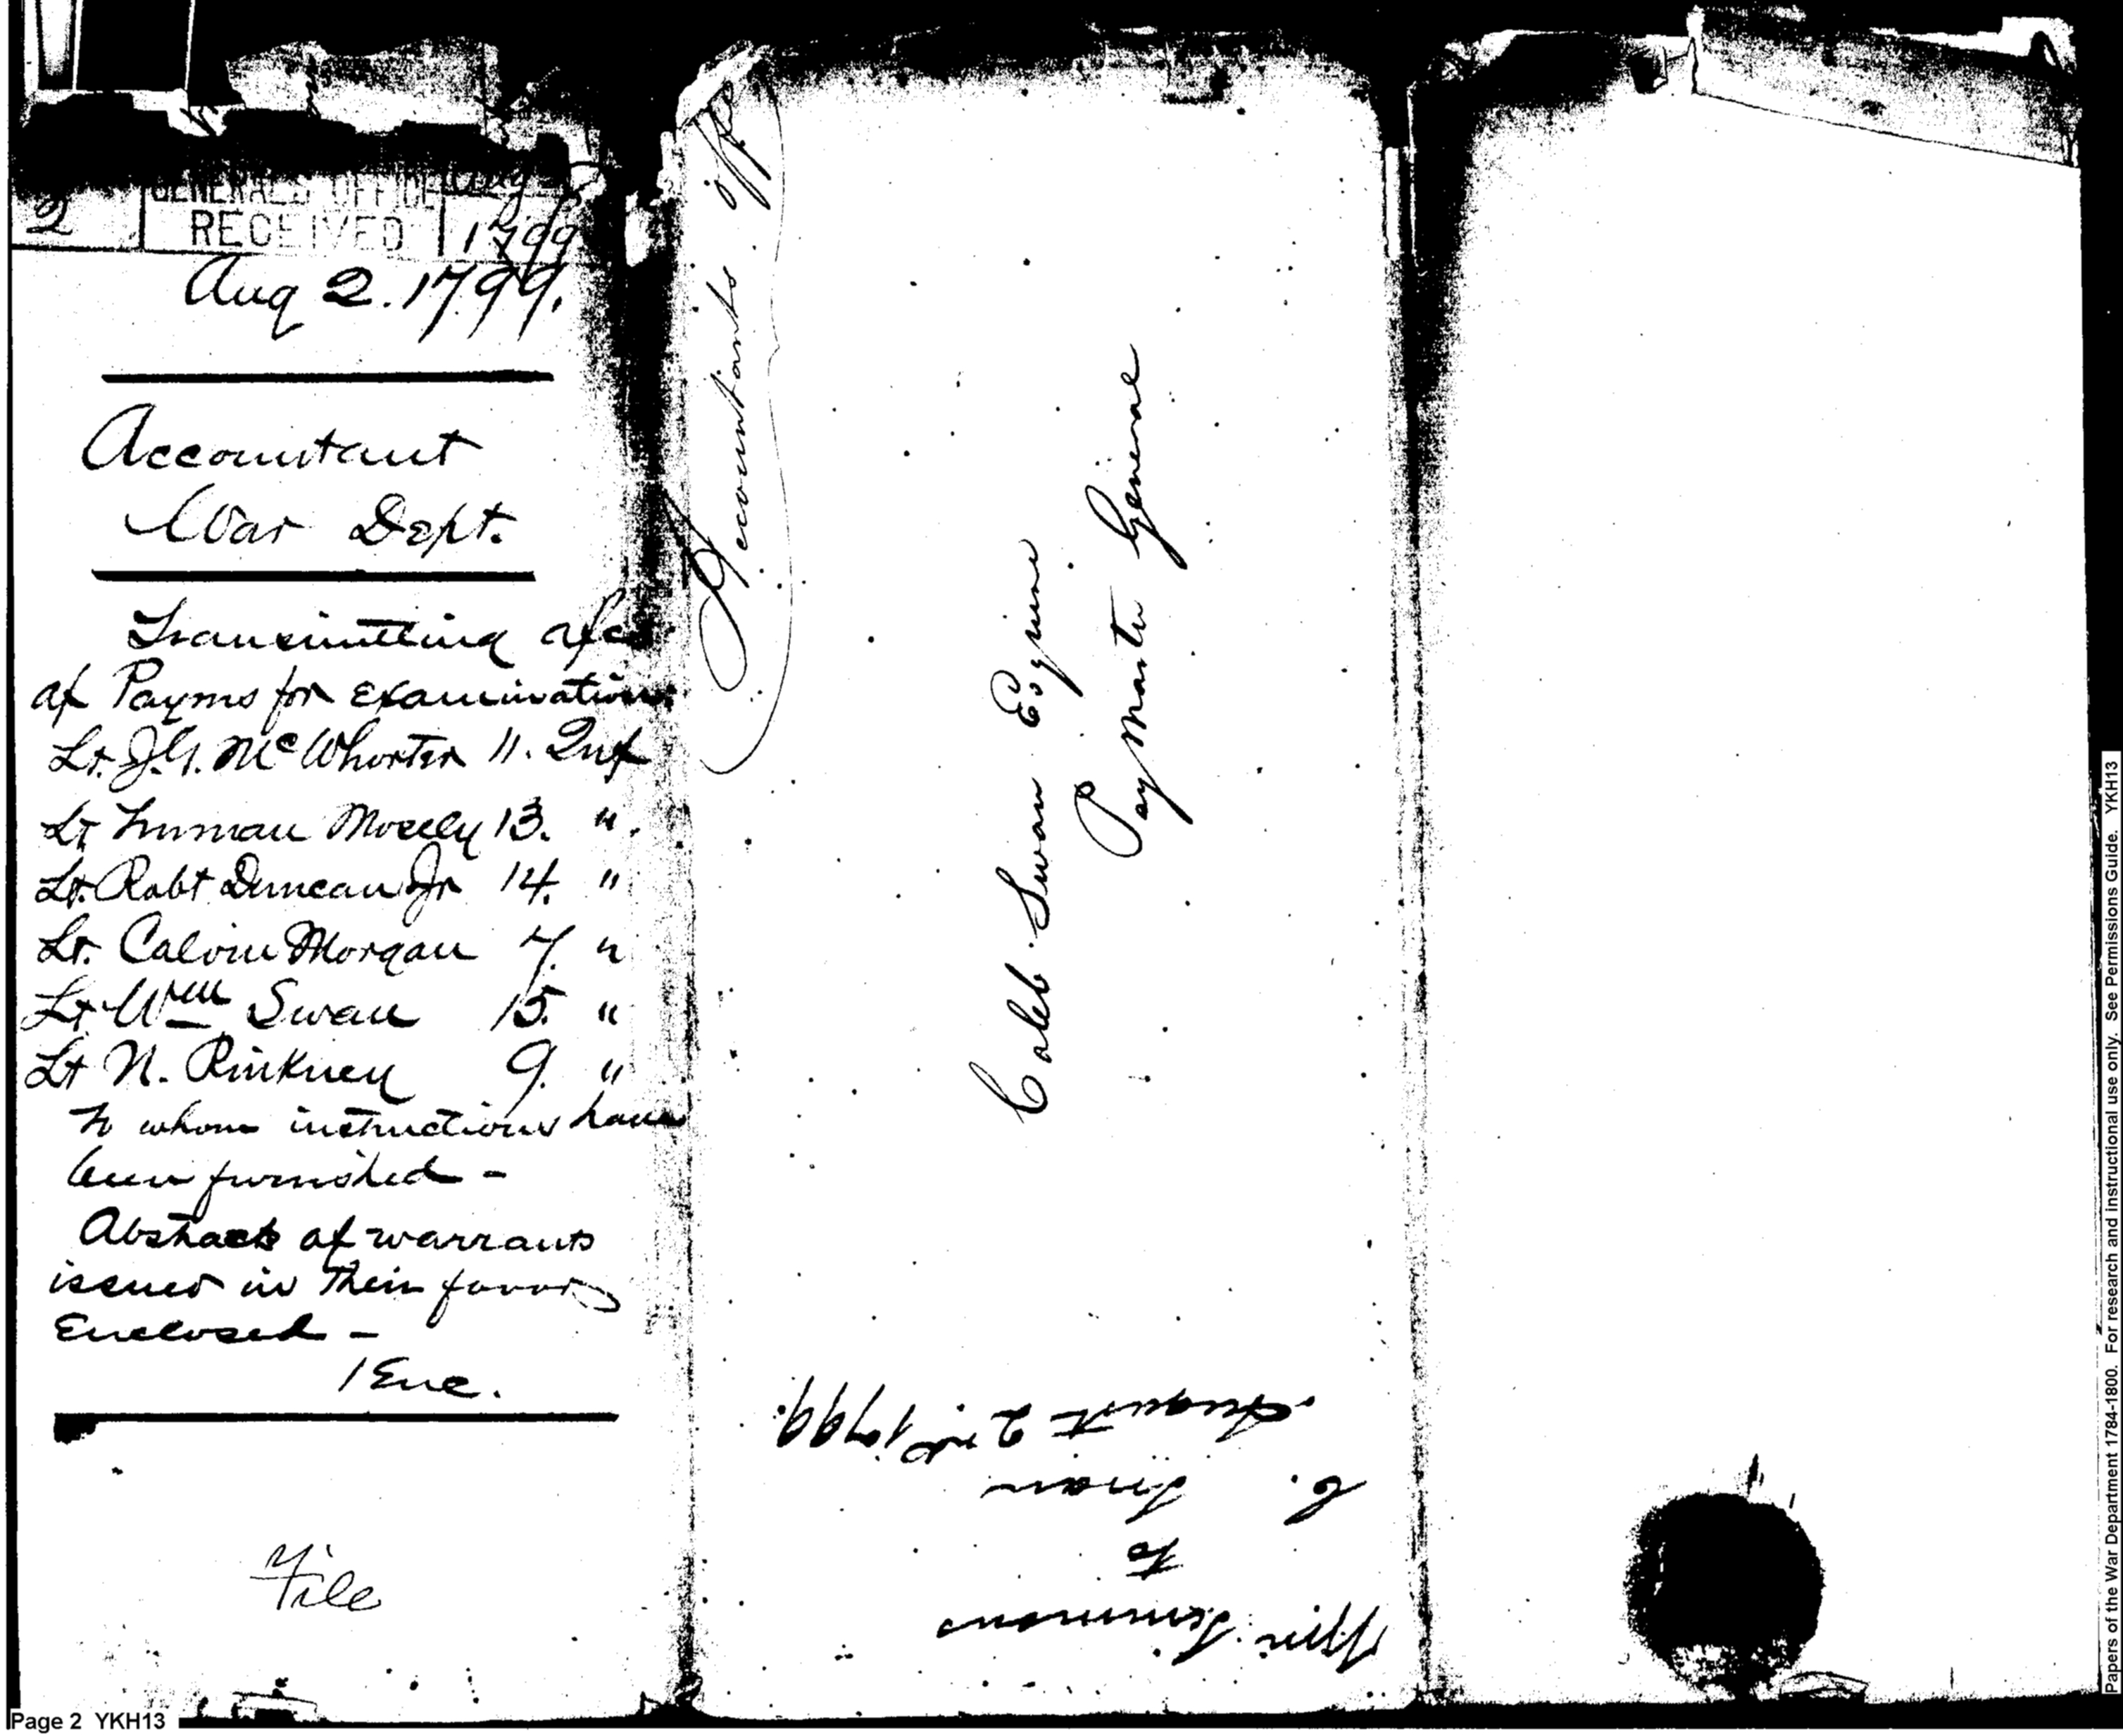 2
GENERAL'S OFFICE Aug
RECEIVED 1799
Aug 2. 1799.
Accountant
War Dept.
Transmitting a/cs
of Payms for examination
Lt. J.G. McWhorter 11. Inf
Lt Truman Mosely 13. "
Lt. Robt Duncan Jr 14. "
Lt. Calvin Morgan 7. "
Lt Wm Swan 15. "
Lt N. Pinkney 9. "
To whom instructions have
been furnished -
Abstracts of warrants
issued in their favor
Enclosed -
1 Enc.
File
Accountants off
Caleb Swan Esquire
PayMaster General
Wm: Simmons
to
C. Swan
August 2nd. 1799.
Page 2 YKH13
Papers of the War Department 1784-1800. For research and instructional use only. See Permissions Guide. YKH13